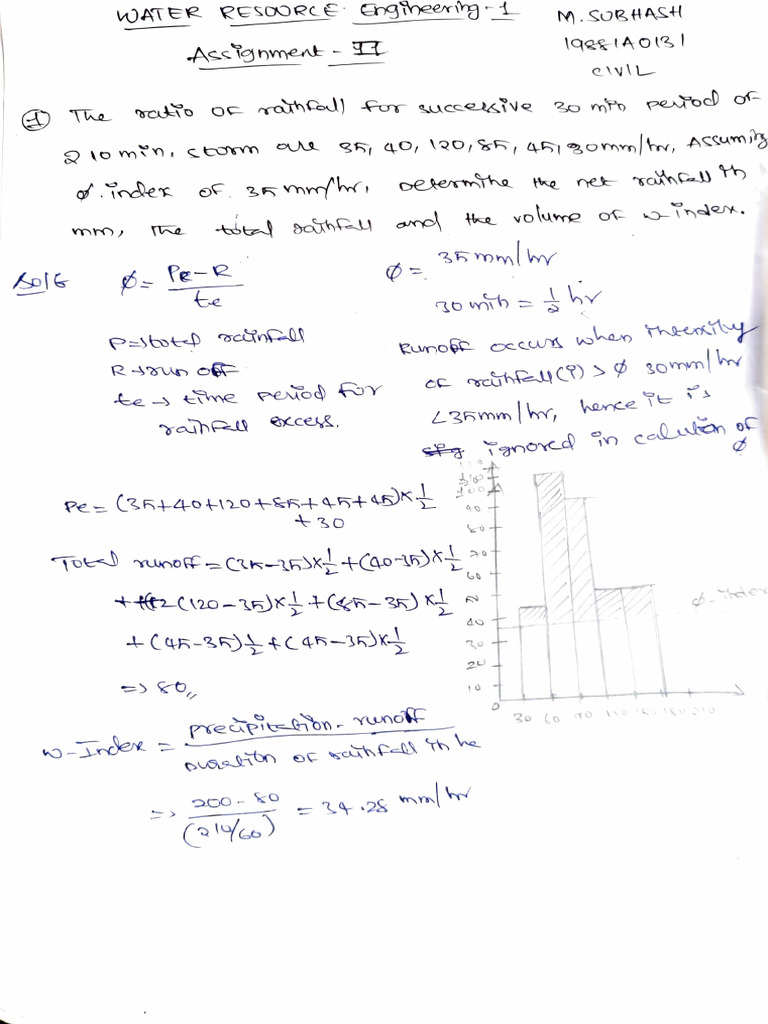 WATER RESOURCE Engineering-1
M. SUBHASH
Assignment - II
19881A0131
CIVIL
① The ratio of rainfall for successive 30 min period of
210min, storm are 35, 40, 120, 85, 45, 30mm/hr, Assuming
Ø.index of 35 mm/hr, Determine the net rainfall in
mm, The total rainfall and the volume of w-index.
Ø = Pe-R / te
Ø = 35mm/hr
30 min = 1/2 hr
P→total rainfall
R→run off
te → time period for
rainfall excess.
Runoff occurs when intensity
of rainfall(i) > Ø 30mm/hr
<35mm/hr, hence it is
ignored in calution of
Ø
Pe = (35+40+120+85+45+45)×1/2
+30
Total runoff = (35-35)×1/2 + (40-35)×1/2
+ (120-35)×1/2 + (85-35)×1/2
+ (45-35)1/2 + (45-35)×1/2
=> 80,,
w-Index = precipitation - runoff / Duration of rainfall in he
=> 200-80 / (210/60) = 34.28 mm/hr
90
80
70
60
50
40
30
20
10
0
Ø-index
30 60 90